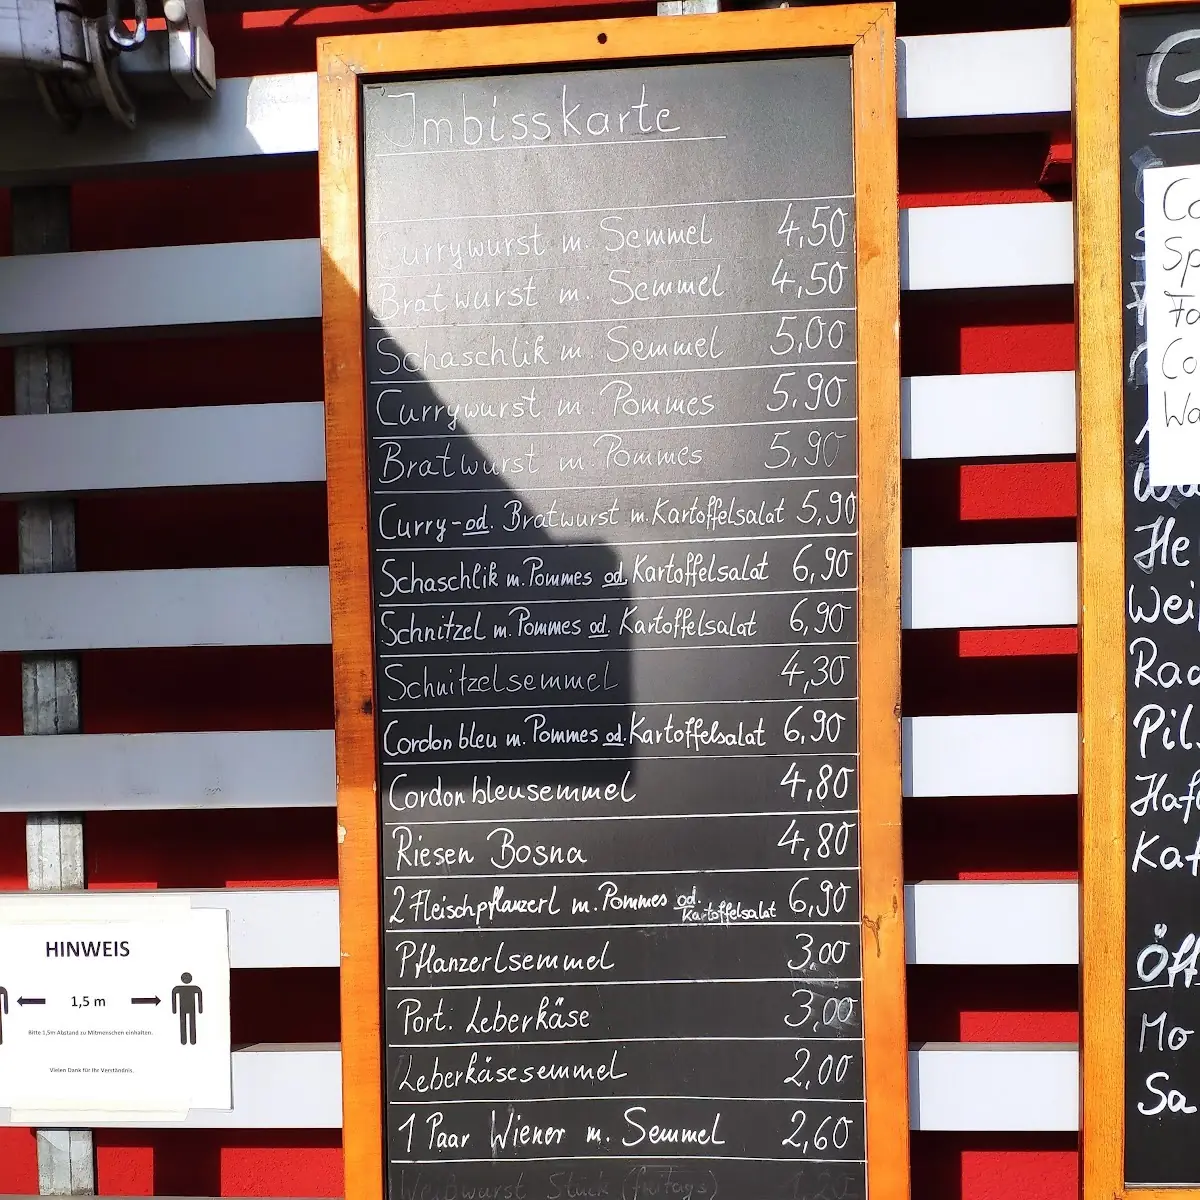 Imbisskarte
Currywurst m. Semmel 4,50
Bratwurst m. Semmel 4,50
Schaschlik m. Semmel 5,00
Currywurst m. Pommes 5.90
Bratwurst m. Pommes 5,90
Curry-od. Bratwurst m. Kartoffelsalat 5,90
Schaschlik m. Pommes od. Kartoffelsalat 6,90
Schnitzel m. Pommes od. Kartoffelsalat 6,90
Schnitzelsemmel 4,30
Cordon bleu m. Pommes od. Kartoffelsalat 6,90
Cordon bleusemmel 4,80
Riesen Bosna 4,80
2 Fleischpflanzerl m. Pommes od. Kartoffelsalat 6,90
Pflanzerlsemmel 3,00
Port. Leberkäse 3,00
Leberkäsesemmel 2,00
1 Paar Wiener m. Semmel 2,60
Weißwurst Stück (freitags) 1,20
HINWEIS
1,5 m
Bitte 1,5m Abstand zu Mitmenschen einhalten.
Vielen Dank für Ihr Verständnis.
G
Co
Sp
Fa
Co
Wa
He
Wei
Rad
Pils
Hafe
Kaf
Öff
Mo
Sa